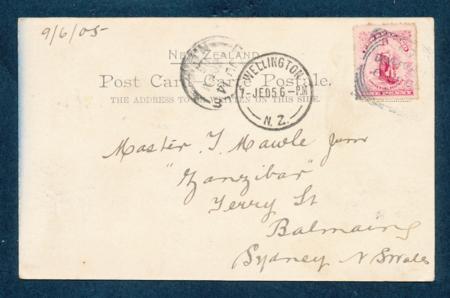 9/6/05
NEW ZEALAND
Post Card Postale.
THE ADDRESS TO BE WRITTEN ON THIS SIDE.
WELLINGTON
7-JE 05 6-PM
N.Z.
PENNY
Master T. Mawle Junr
"Zanzibar"
Terry St
Balmain
Sydney N S Wales